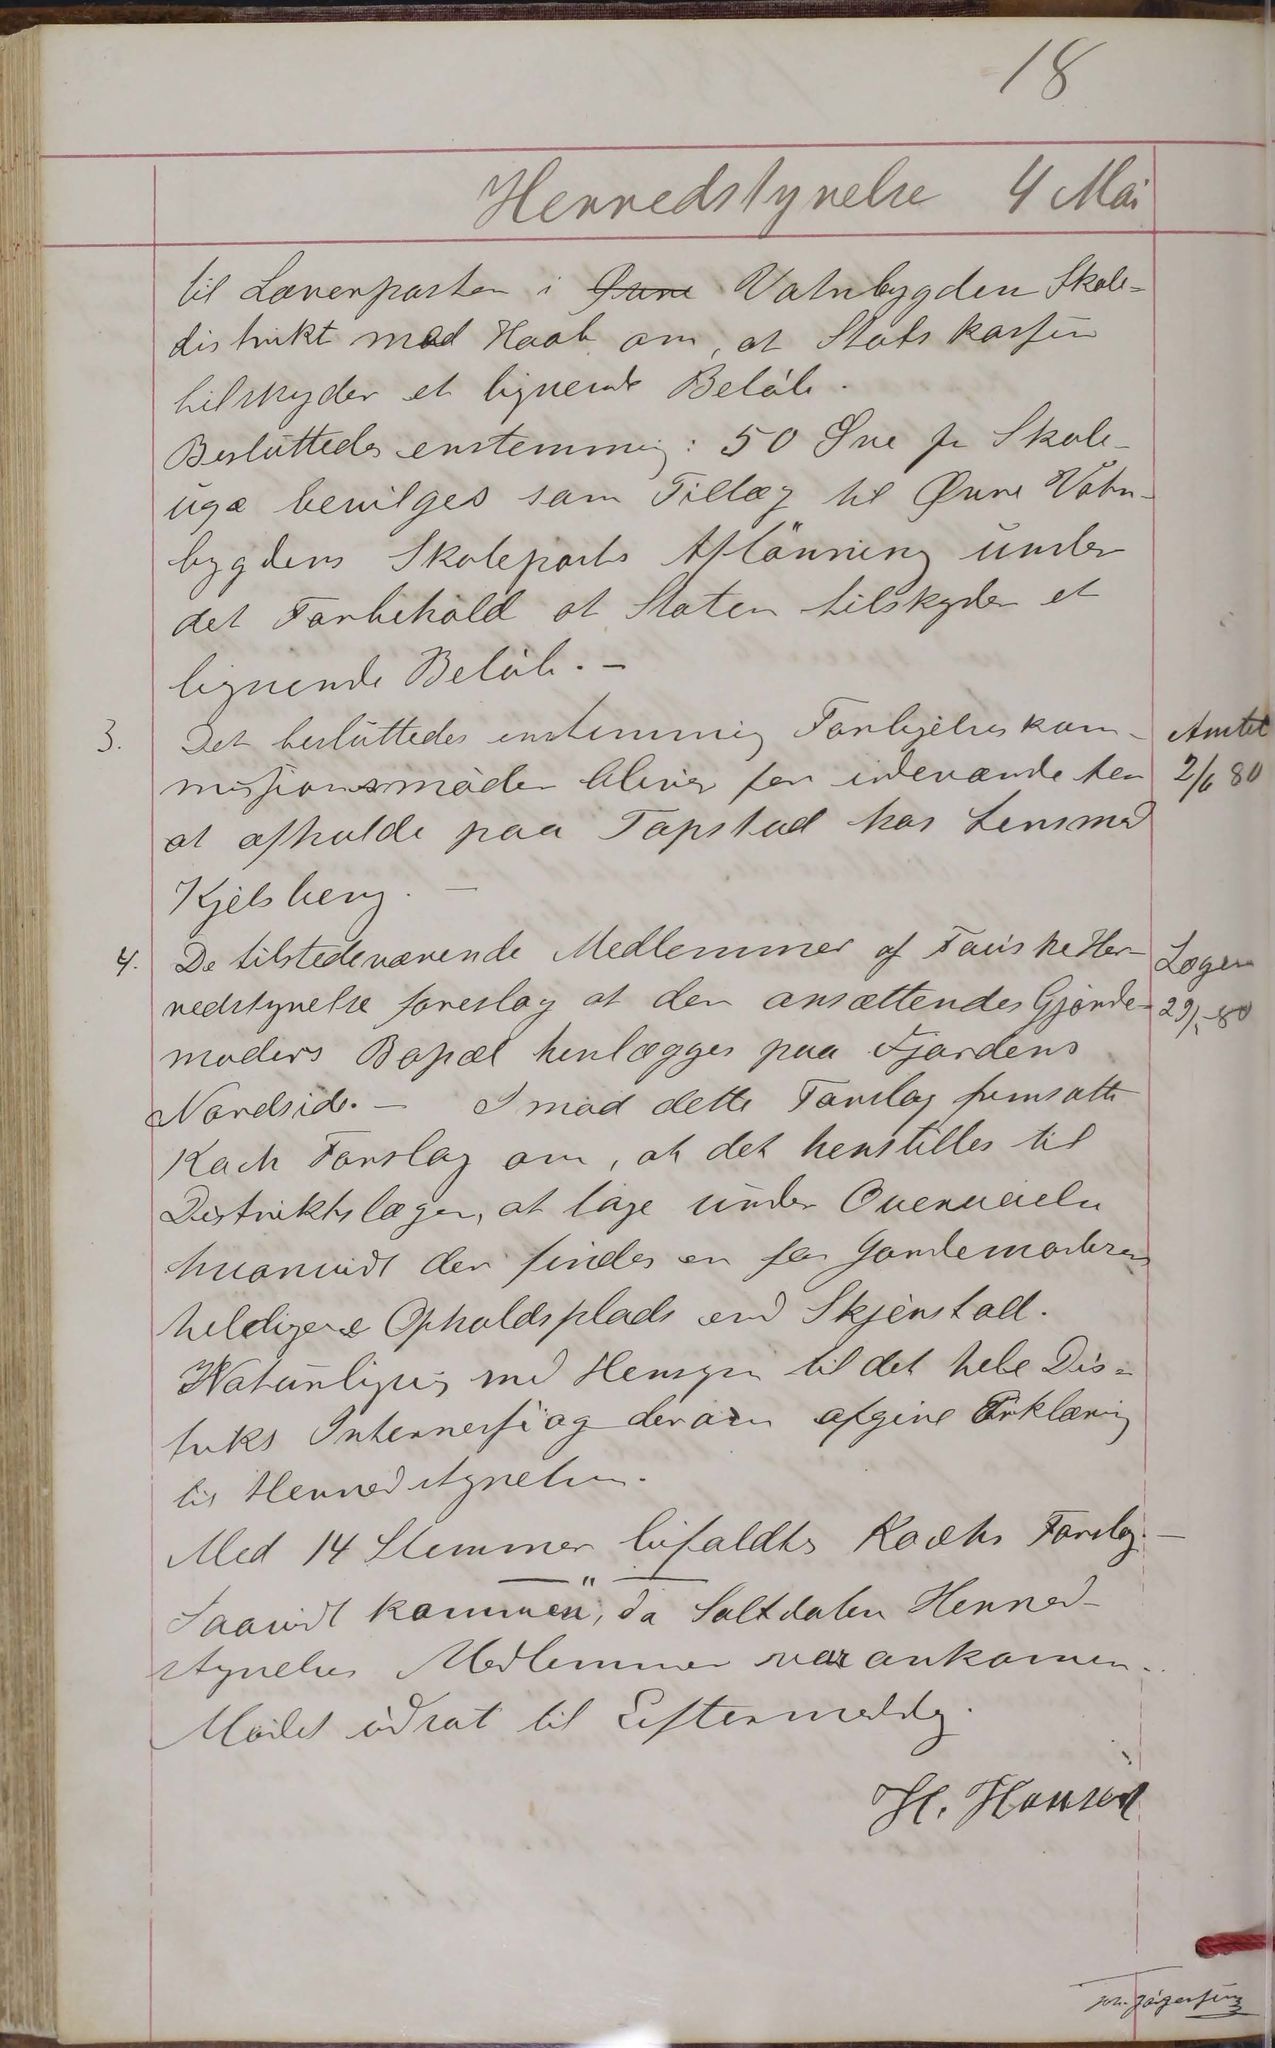 18
Herredstyrelse 4 Mai
til Lærerposten i Øvre Vatnbygden Skole-
distrikt med Haab om, at Statskassen
tilskyder et lignende Beløb.
Besluttedes enstemmig: 50 Øre pr Skole-
uge bevilges som Tillæg til Øvre Vatn-
bygdens Skoleposts Aflønning under
det Forbehold at Staten tilskyder et
lignende Beløb. -
3. Det besluttedes enstemmig Forligelseskom- Amtet
missionsmøder bliver for indeværende ter 2/6 80
at afholde paa Tapstad hos Lensmd
Kjelsberg. -
4. De tilstedeværende Medlemmer af Fauske Her- Lægen
redstyrelse foreslog at den ansættendes Gjorde- 29/5-80
moders Bopæl henlægges paa Fjordens
Nordside. - Imod dette Forslag fremsatte
Koch Forslag om, at det henstilles til
Distriktslægen, at tage under Overveielse
hvorvidt der findes en for Gordemoderen
heldigere Opholdsplads end Skjerstad.
Naturligvis med Hensyn til det hele Dis-
trikts Interesse og derom afgive Erklæring
til Herredstyrelsen.
Med 14 Stemmer bifaldtes Kochs Forslag. -
Saavidt kommen, da Saltdalen Herred-
styrelses Medlemmer var ankommen.
Mødet udsat til Eftermiddag.
H. Hansen
Joh. Jörgensen